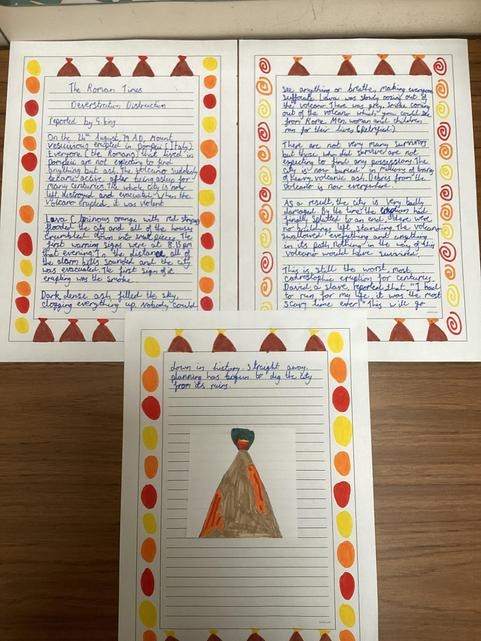 The Roman Times
Deverstration Distruction
reported by S. king
On the 24th August, 79 AD, Mount
vesuvious erupted in Pompeii (Italy).
Everyone (the Romans) that lived in
Pompeii are not expecting to find
anything but ash. The volcano suddenly
became active after being asleep for
many centuries. The whole city is now
left destroyed and evacuated. When the
volcano erupted, it was violent.
Lava (luminous orange with red
flooded the city and all of the houses
crumbled down into small pieces. The
first warning signs were at 8:13pm
that evening. In the distance all of
the alarm bells sounded and the city
was evacuated. The first sign of it
erupting was the smoke.
Dark, dense ash filled the sky,
clogging everything up. Nobody could
see anything or breathe, making everyone
suffocate. Lava was slowly oozing out of
the volcano. There was grey, smoke coming
out of the volcano what you could see
from Rome. Men, woman and children
ran for their lives (petrified).
There are not very many survivors
but those who did survive are not
expecting to find any possessions. The
city is now buried in millions of tonnes
of heavy, volcanic ash. Debris from the
volcano is now everywhere.
As a result, the city is very badly
damaged. By the time the had
finally splatted to an end, there were
no buildings left standing. The volcano
swallowed everything and anything
in its path. Nothing in the way of this
volcano would have survived.
This is still the worst, most
catastrophic eruption for centuries.
David, a slave, reported that, "I had
to run for my life, it was the most
scary time ever!" This will go
down in history. Straight away,
planning has begun to dig the city
from its ruins.